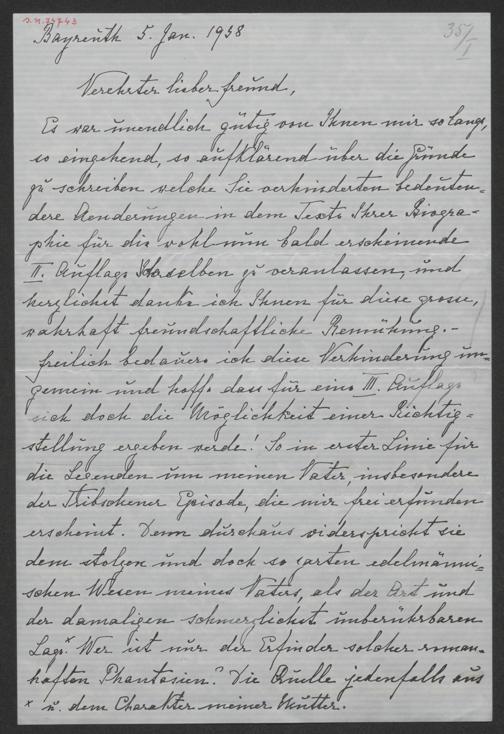 I.N. 74743
357/I
Bayreuth 5. Jan. 1938
Verehrter lieber Freund,
Es war unendlich gütig von Ihnen mir so lange,
so eingehend, so aufklärend über die Gründe
zu schreiben welche Sie verhinderten bedeuten=
dere Aenderungen in dem Texte Ihrer Biogra-
phie für die wohl nun bald erscheinende
II. Auflage derselben zu veranlassen, und
herzlichst danke ich Ihnen für diese grosse,
wahrhaft freundschaftliche Bemühung.-
Freilich bedauere ich diese Verhinderung un-
gemein und hoffe dass für eine III. Auflage
sich doch die Möglichkeit einer Richtig=
stellung ergeben werde! So in erster Linie für
die Legenden um meinen Vater, insbesondere
der Tribschener Episode, die mir frei erfunden
erscheint. Denn durchaus widerspricht sie
dem stolzen und doch so zarten edelmänni=
schen Wesen meines Vaters, als der Art und
der damaligen schmerzlichst unberührbaren
Lage.* Wer ist nur der Erfinder solcher roman-
haften Phantasien? Die Quelle jedenfalls aus
* u. dem Charakter meiner Mutter.